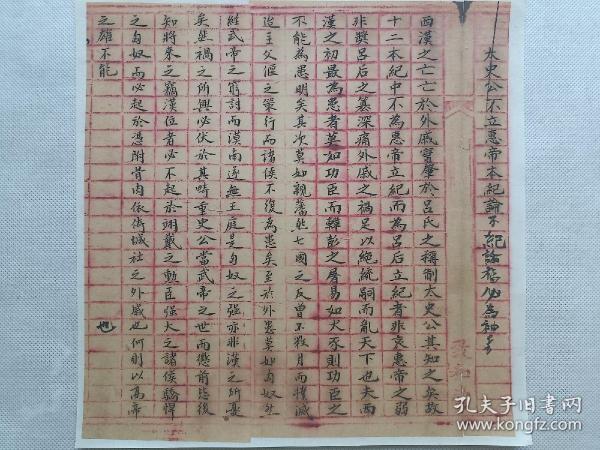 太史公不立惠帝本紀論
西漢之亡亡於外戚實肇於呂氏之稱制太史公其知之矣故
十二本紀中不為惠帝立紀而為呂后立紀者非哀惠帝之弱
非獎呂后之篡深痛外戚之禍足以絕統嗣而亂天下也夫西
漢之初最為患者莫如功臣而韓彭之屠易如犬豕則功臣之
不能為患明矣其次莫如親藩然七國之反曾不數月而悛滅
迨主父偃之策行而諸侯不復為患矣至於外患莫如匈奴然
經武帝之窮討而漠南遂無王庭是匈奴之強亦非漢之所憂
矣然禍之所興必伏於其時重史公當武帝之世而懲前毖後
知將來之竊漢位者必不起於翊戴之勳臣強大之諸侯驕悍
之匈奴而必起於憑附骨肉依倚城社之外戚也何則以高帝
之雄不能
也
孔夫子旧书网
www.kongfz.com